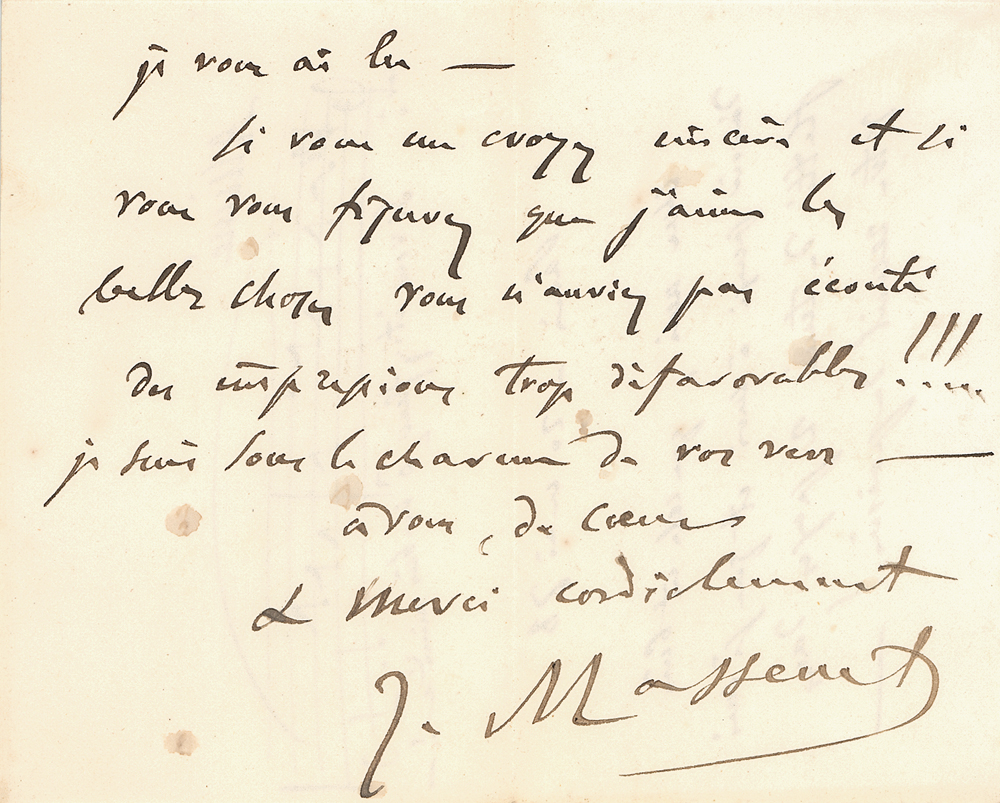 je vous ai lu —
si vous me croyez sincère et si
vous vous figurez que j'aime les
belles choses vous n'auriez pas écouté
des impressions trop défavorables !!!....
je suis sous le charme de vos vers —
à vous, de cœur
& merci cordialement
J. Massenet